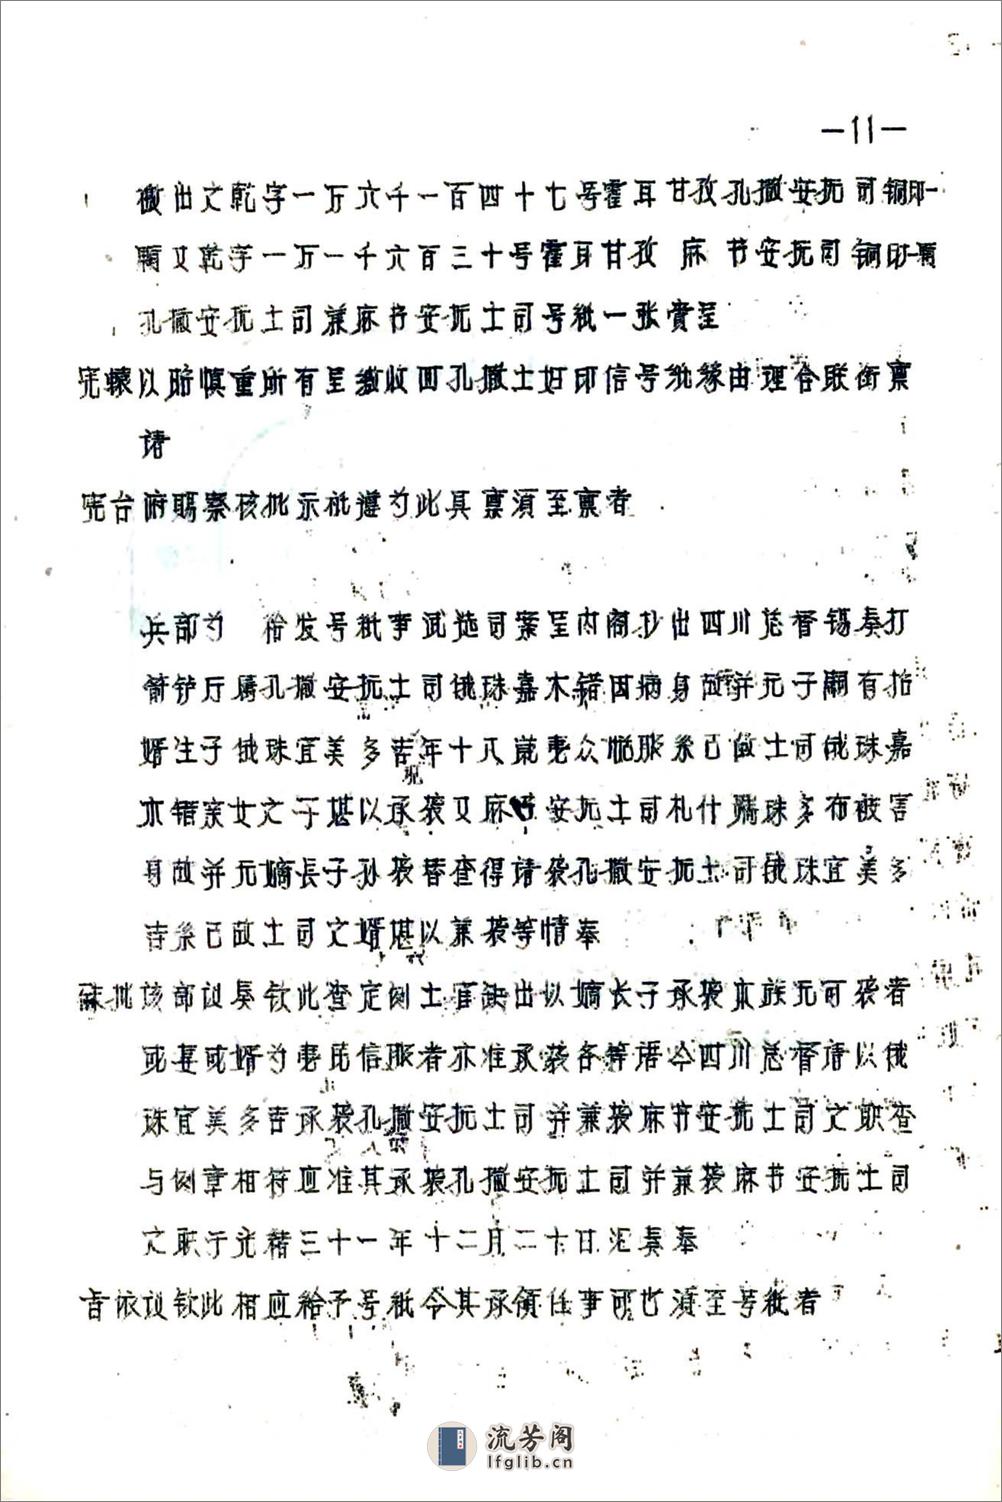 —11—
缴出文乾字一万六千一百四十七号霍耳甘孜孔撒安抚司铜印一
颗又乾字一万一千六百三十号霍耳甘孜 麻 书安抚司铜印一颗
孔撒安抚土司兼麻书安抚土司号纸一张赍呈
宪辕以昭慎重所有呈缴收回孔撒土妇印信号纸缘由理合联衔禀
请
宪台俯赐察核批示祗遵为此具禀须至禀者
兵部为 给发号纸事武选司案呈内阁抄出四川总督锡奏打
箭铲厅属孔撒安抚土司俄珠嘉木错因病身故并无子嗣有招
婿生子俄珠宜美多吉年十八岁夷众悦服系已故土司俄珠嘉
现
木错亲女之子堪以承袭又麻书安抚土司札什 珠多布被害
身故并无嫡长子孙袭替查得请袭孔撒安抚土司俄珠宜美多
吉系已故土司之婿堪以兼袭等情奉
批该部议奏钦此查定例土官缺出以嫡长子承袭本族无可袭者
或妻或婿为夷民信服者亦准承袭各等语今四川总督请以俄
珠宜美多吉承袭孔撒安抚土司并兼袭麻书安抚土司之职查
与例章相符应准其承袭孔撒安抚土司并兼袭麻书安抚土司
之职于光绪三十一年十二月二十日汇奏奉
旨依议钦此相应给予号纸令其承领任事可也须至号纸者
流芳阁
lfglib.cn